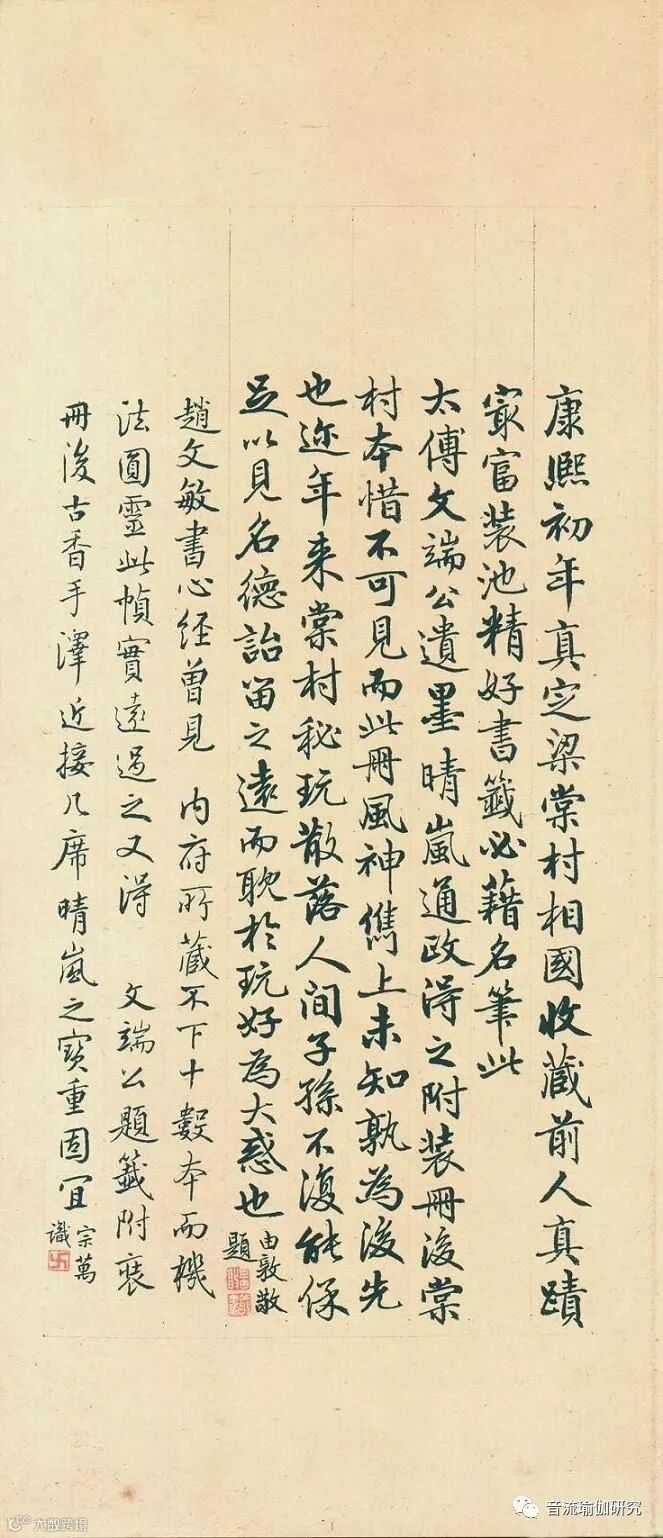 康熙初年真定梁棠村相國收藏前人真蹟
寂富装池精好書籤必藉名筆此
太傅文端公遺墨晴嵐通政得之附装冊後棠
村本惜不可見而此冊風神儁上未知孰為後先
也迩年来棠村秘玩散落人间子孫不復能保
足以見名德詒留之遠而耽於玩好為大惑也
由敦敬
題
趙文敏書心经曾見 内府所藏不下十數本而機
法圓靈此幀實遠過之又得 文端公題籤附裝
冊後古香手澤近接几席晴嵐之寶重固宜
宗萬
識
大数跨境
音流瑜伽研究